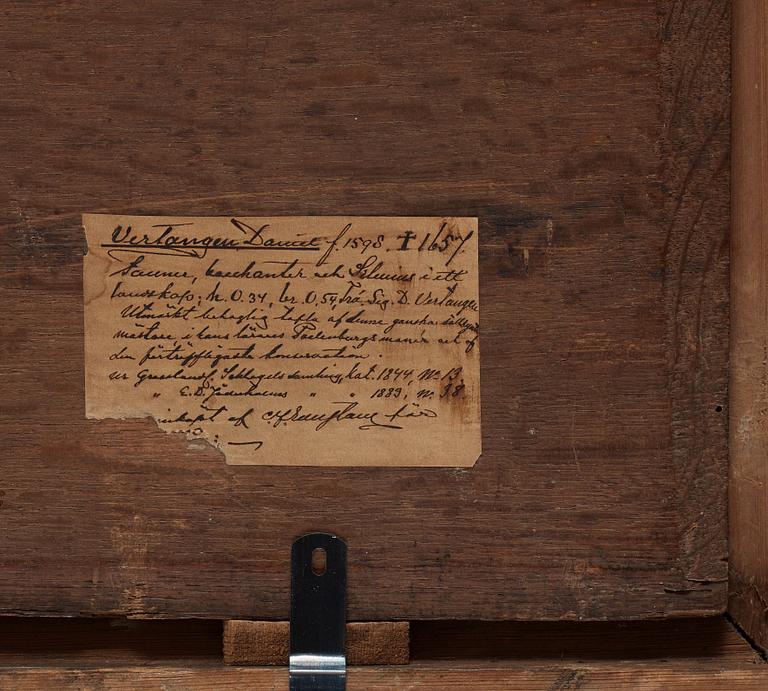 Vertangen Daniel f. 1598. † 1657.
Fauner, backanter och Silenius i ett
landskap; h. 0.34, br. 0,54, Trä. Sig. D. Vertangen
Utmärkt behaglig tafla af denne ganska sällsynte
mästare, i hans lärares Poelenburgs manér och af
den förträffligaste konservation.
ur Grosshandl. Schlegels samling, Kat. 1844, No 13,
" C.D. Jäderholms " " 1883, no 38.
inköpt af för